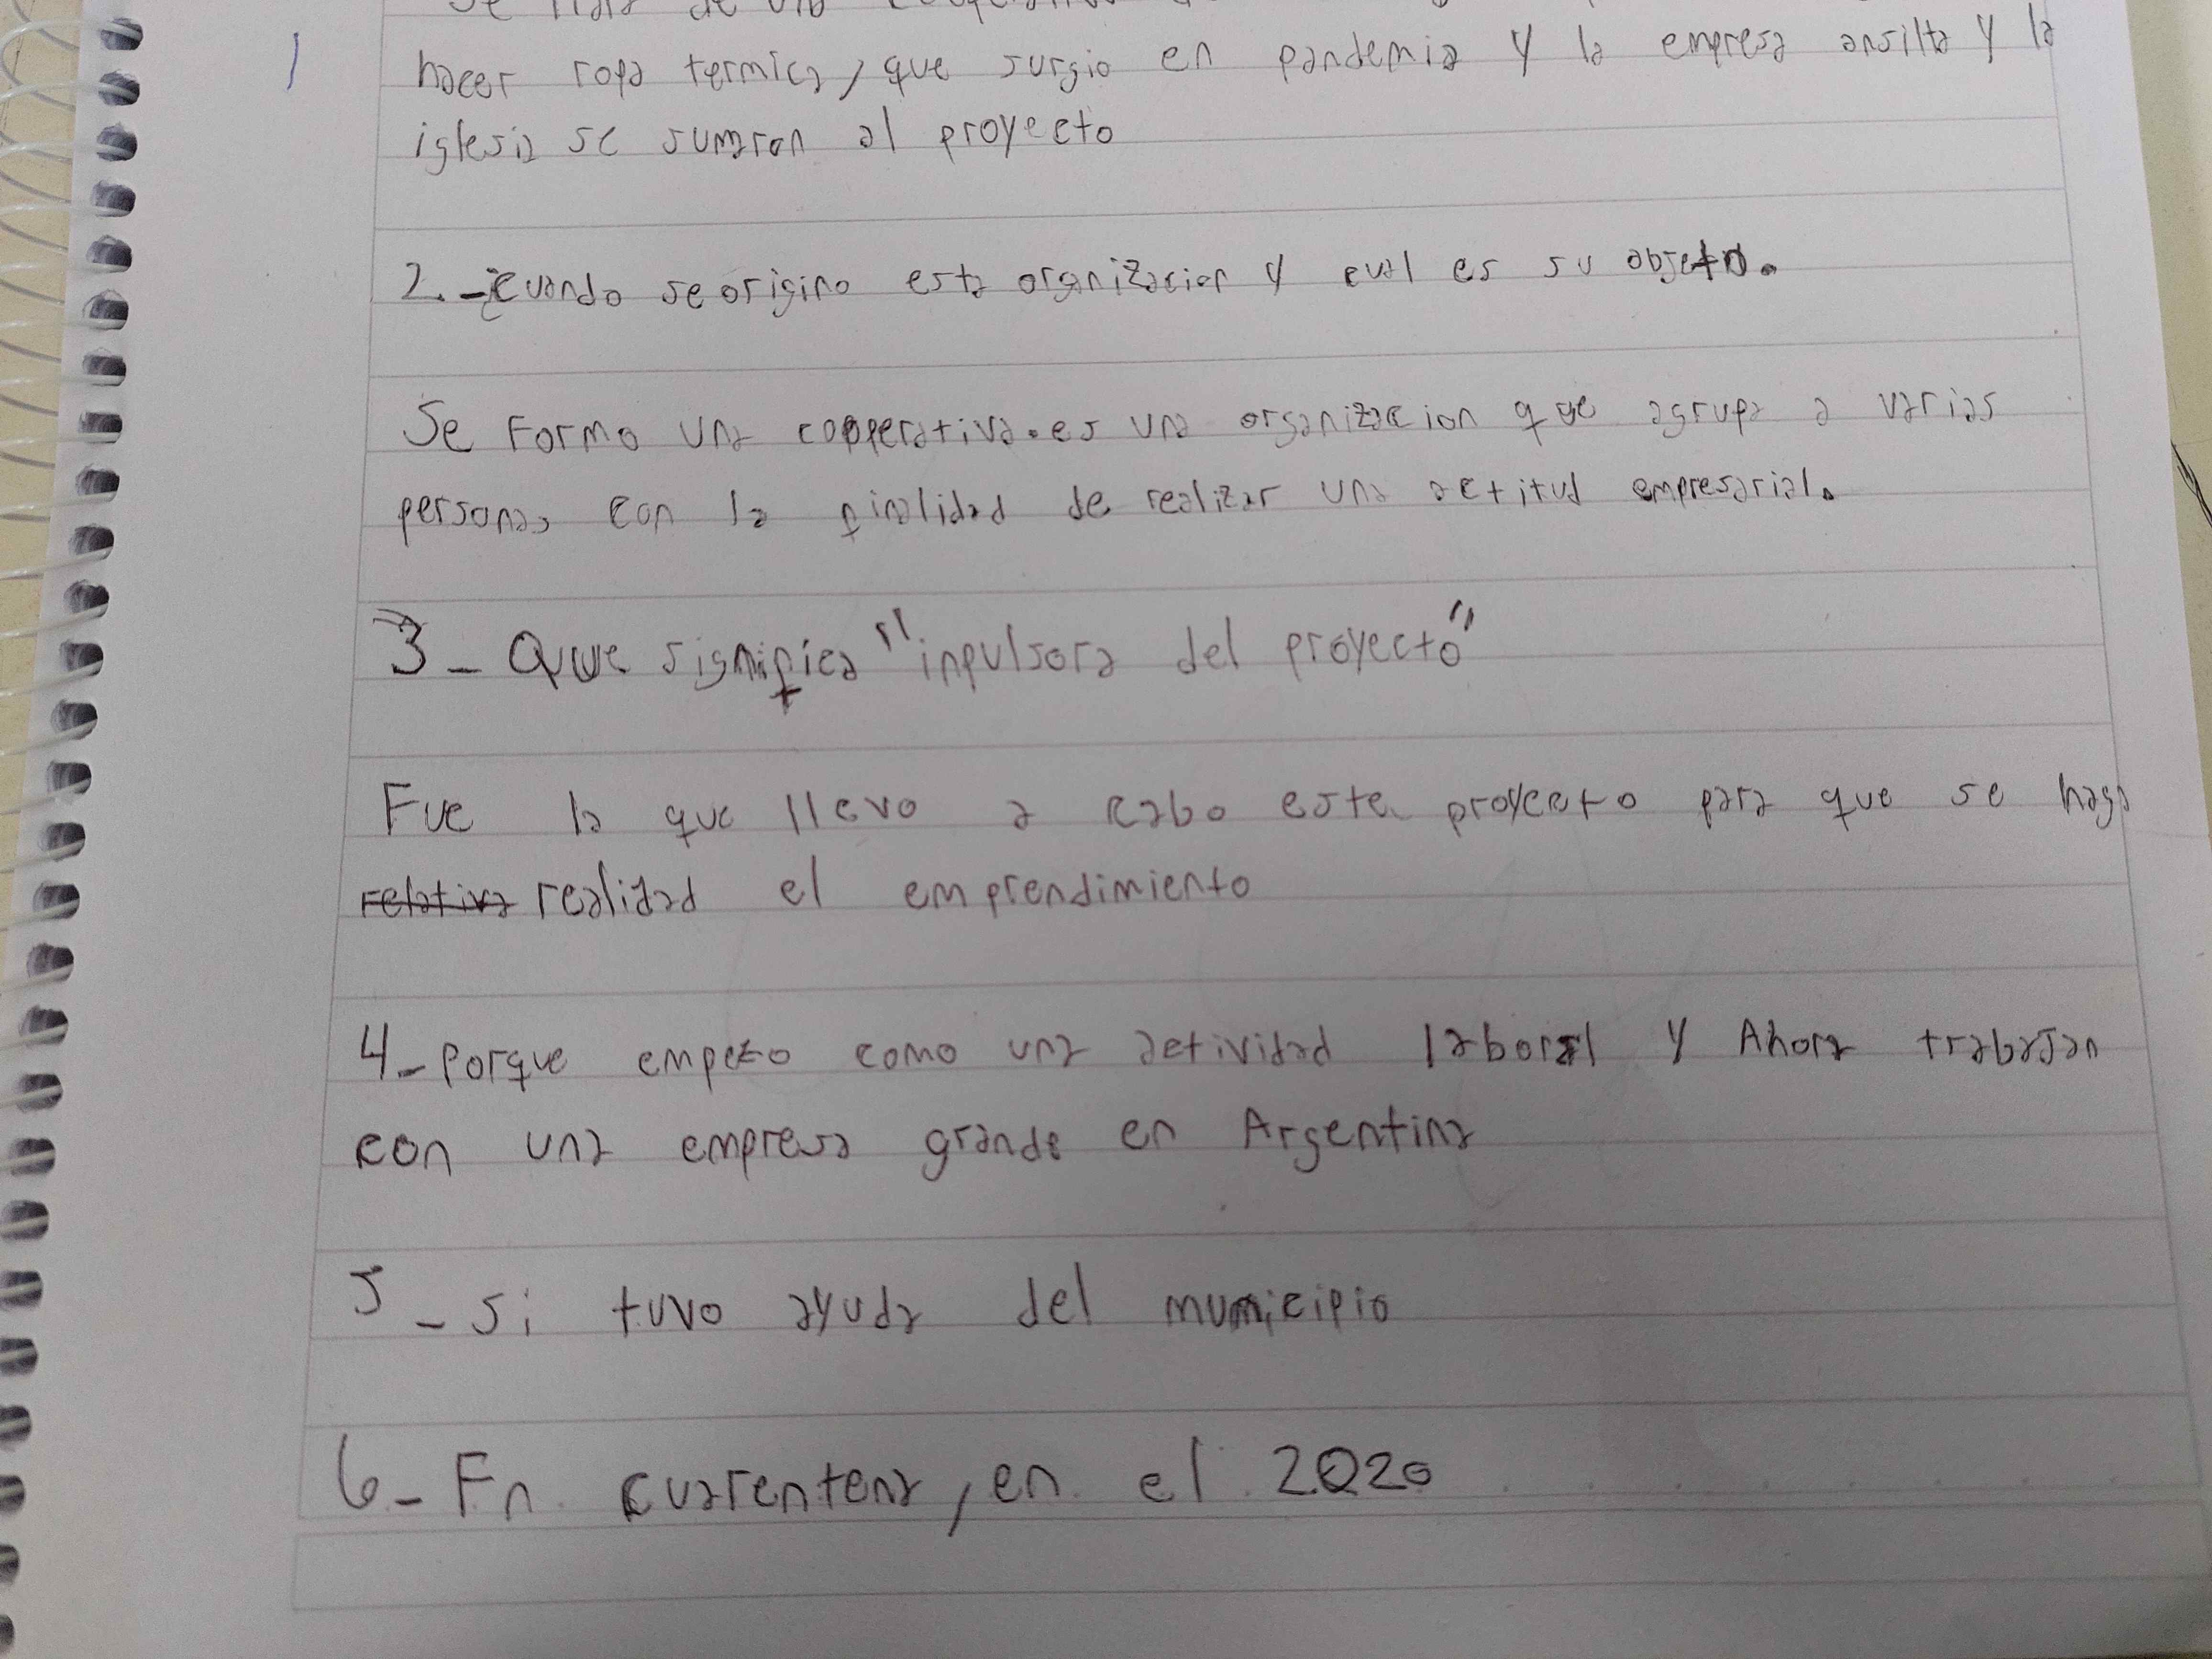 Se trata de una
hacer ropa termica, que surgio en pandemia y la empresa ansilta y la
iglesia se sumaron al proyecto
2.-¿cuando se origino esta organizacion y cual es su objeto.
Se Formo una cooperativa.es una organizacion que agrupa a varias
personas con la finalidad de realizar una actitud empresarial.
3- Que significa "inpulsora del proyecto"
Fue la que llevo a cabo este proyecto para que se haga
relativa realidad el emprendimiento
4-Porque empezo como una actividad laboral y Ahora trabajan
con una empresa grande en Argentina
5-Si tuvo ayuda del municipio
6-En cuarentena, en el 2020